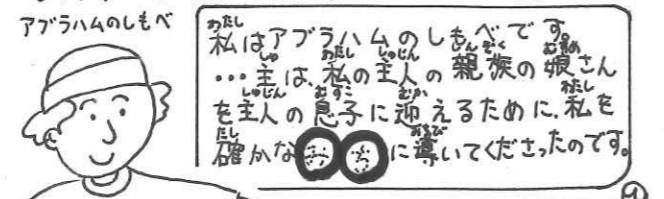 アブラハムのしもべ
私はアブラハムのしもべです。
…主は、私の主人の親族の娘さん
を主人の息子に迎えるために、私を
確かな に導いてくださったのです。